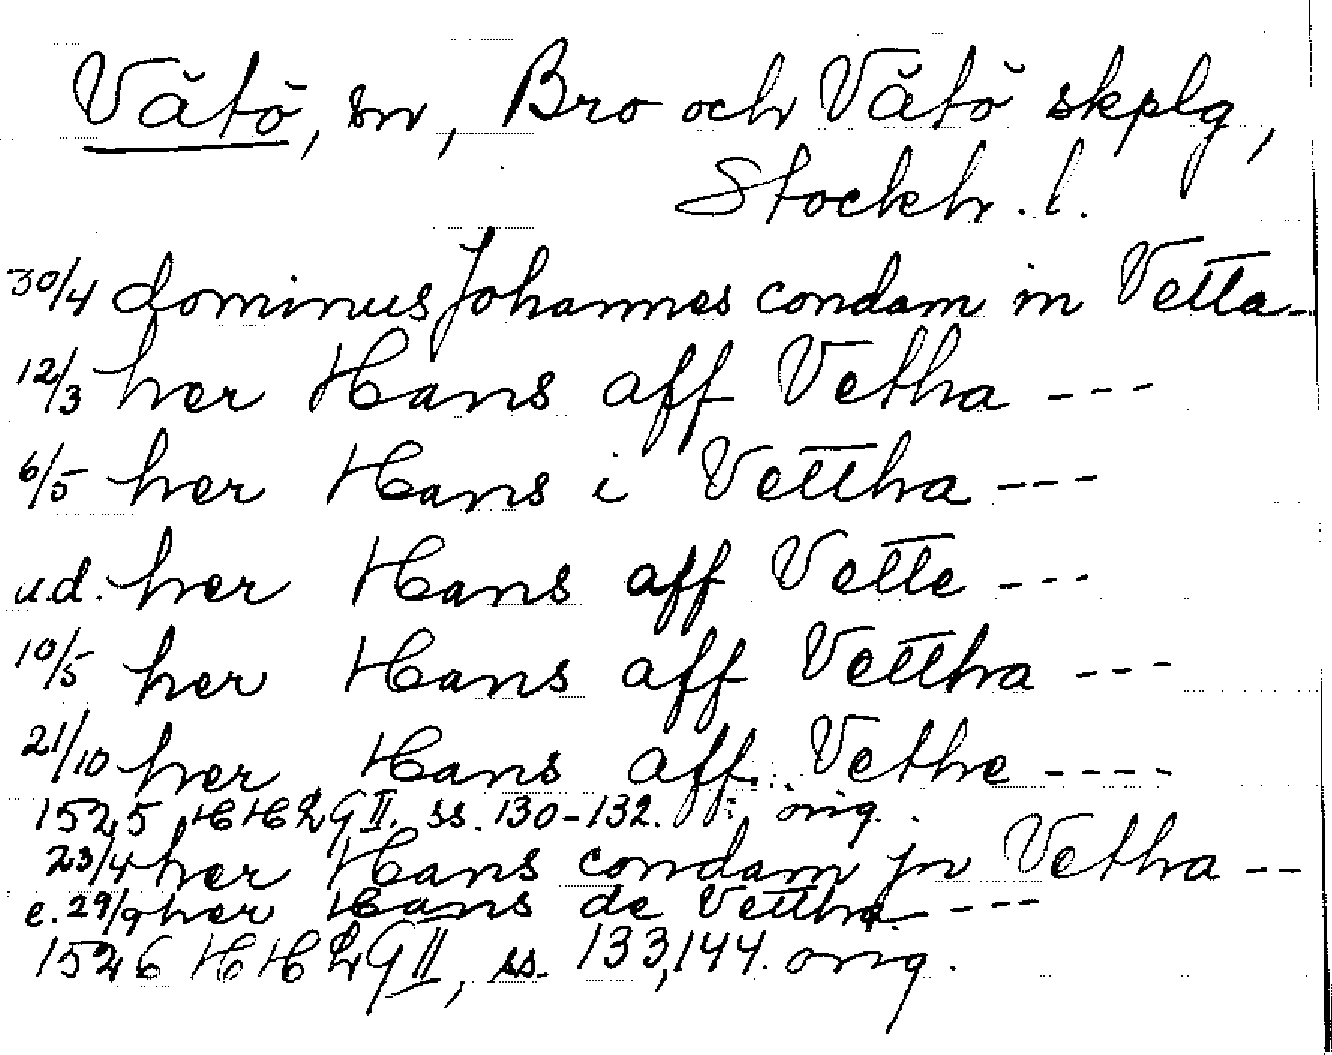 Vätö, sn, Bro och Vätö skplg,
Stockh. l.
30/4 dominus Johannes condam in Vetta--
12/3 her Hans aff Vetha ---
6/5 her Hans i Vettha ---
u.d. her Hans aff Vette ---
10/5 her Hans aff Vettha ---
21/10 her Hans aff Vethe ----
1525 HH2G II. ss. 130-132. orig.
23/4 her Hans condam jn Vetha --
e. 29/9 her Hans de Vettha ----
1526 HH2G II, ss. 133, 144. orig.